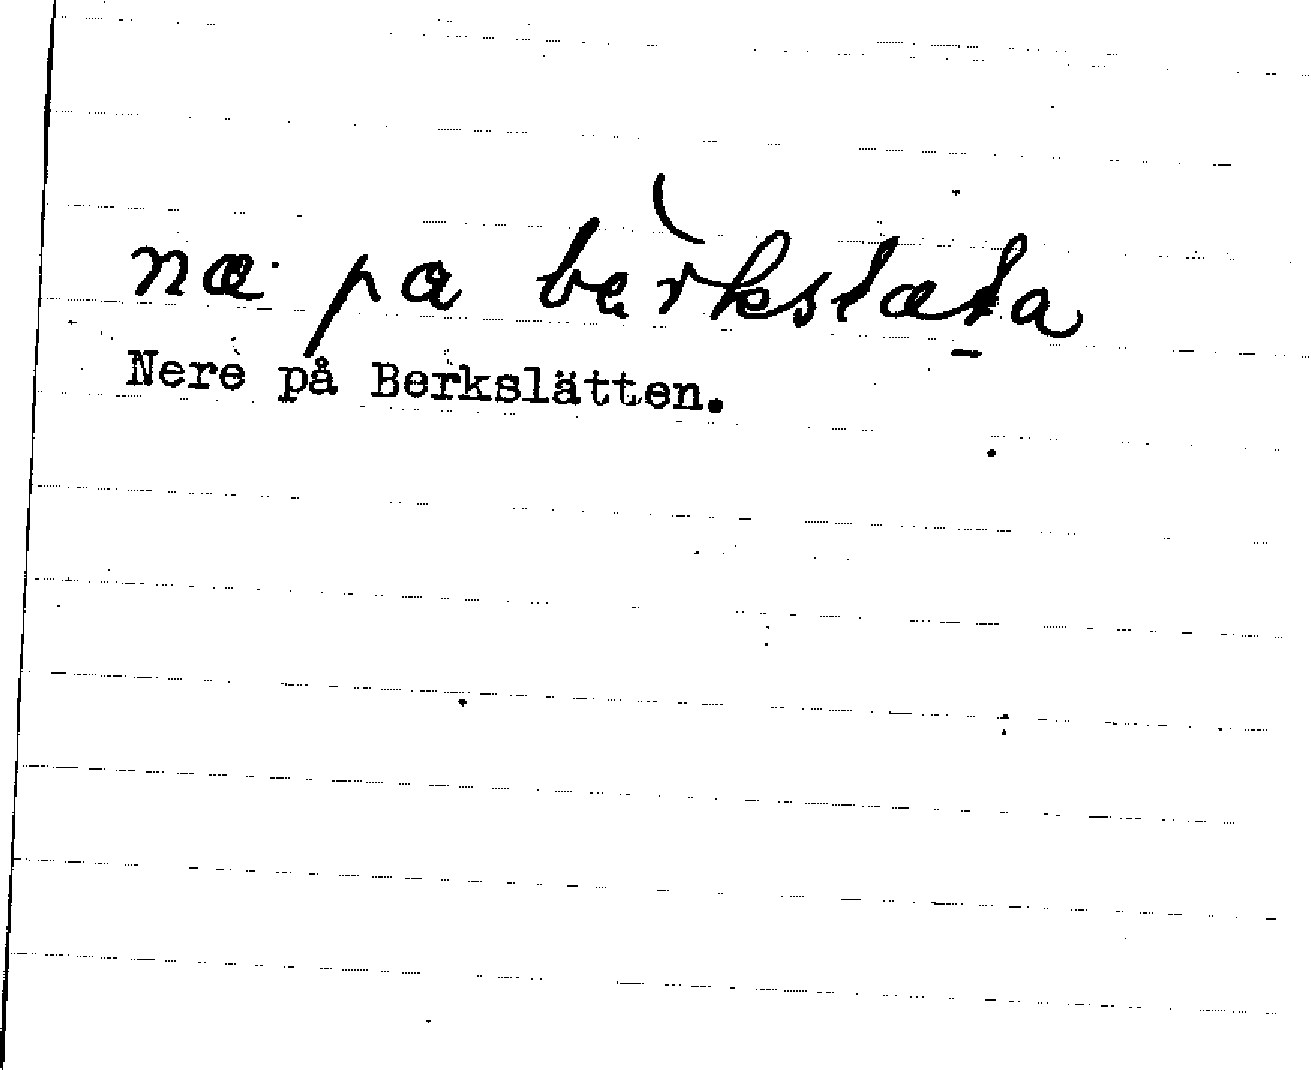 næ· pa bèrkslæt̲a
Nere på Berkslätten.